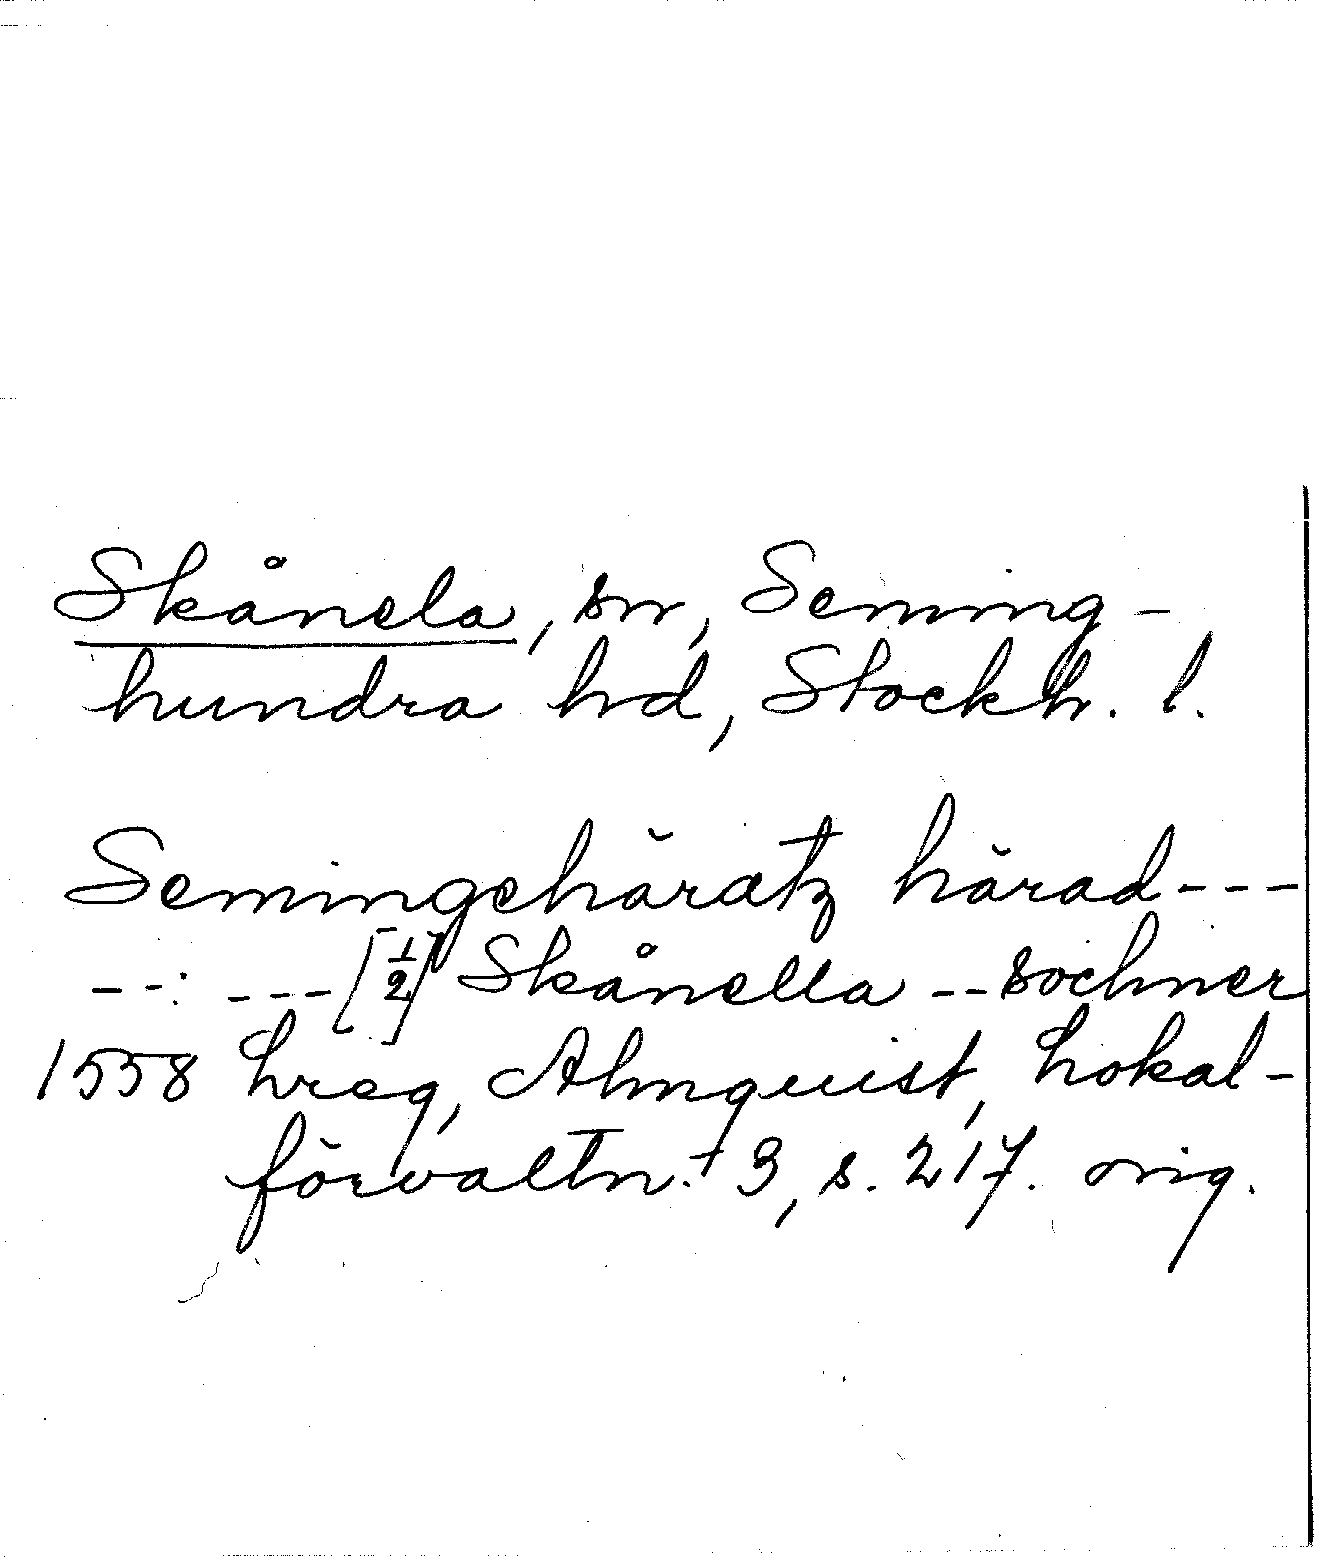 Skånela, sn, Seming-
hundra hd, Stockh. l.
Semingehäratz härad---
--: ---[½] Skånella --sochner
1558 hreg, Almquist, Lokal-
förvaltn. 3, s. 217. orig.